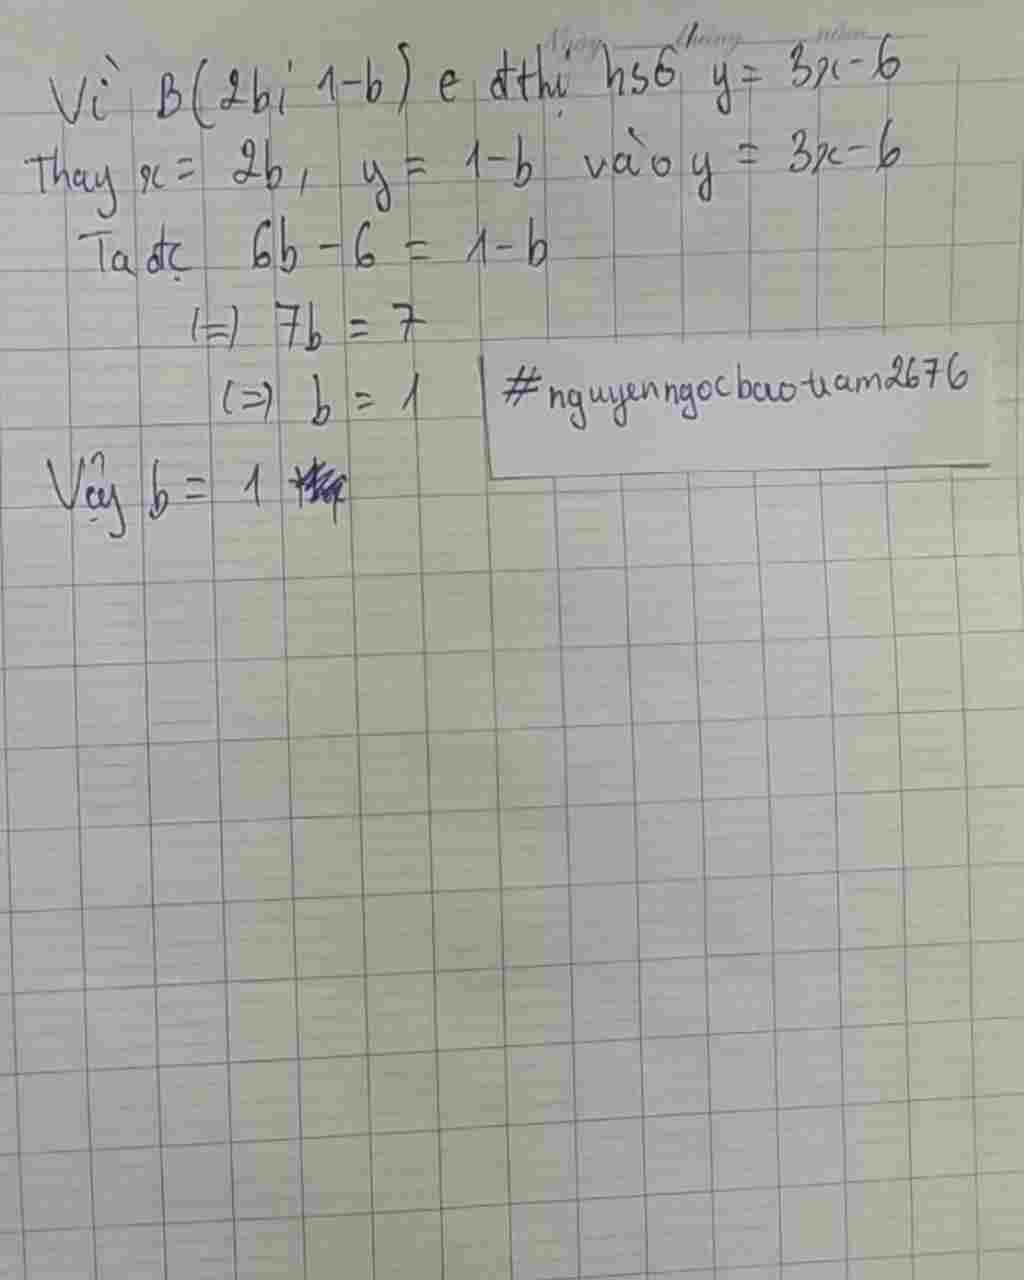 Ngày tháng năm
Vì B(2b; 1-b) e đthị hsố y = 3x-6
Thay x = 2b, y = 1-b vào y = 3x-6
Ta đc 6b - 6 = 1-b
(=) 7b = 7
(=) b = 1
#nguyenngocbaotram2676
Vậy b = 1